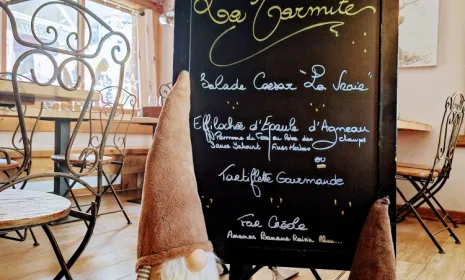 La Marmite
Salade Caesar "La Vraie"
Effilochée d'Epaule d'Agneau
Pommes de Terre ou Riz des champs
Sauce Yahourt Fines Herbes
ou
Tartiflette Gourmande
Far Créole
Ananas Banane Raisin Rhum...